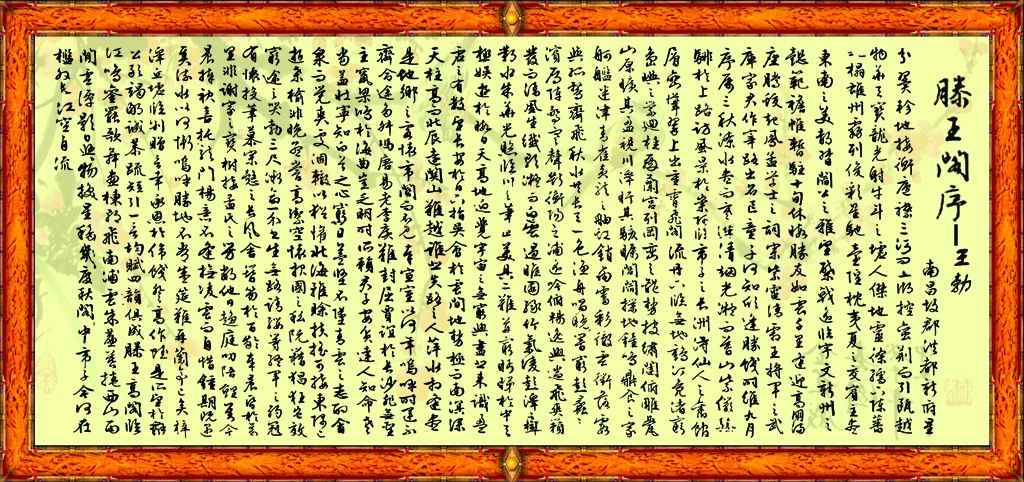 滕王閣序—王勃
南昌故郡洪都新府星
分翼軫地接衡廬襟三江而帶五湖控蠻荊而引甌越
物華天寶龍光射牛斗之墟人傑地靈徐孺下陳蕃
之榻雄州霧列俊彩星馳臺隍枕夷夏之交賓主盡
東南之美都督閻公之雅望棨戟遙臨宇文新州之
懿範襜帷暫駐十旬休暇勝友如雲千里逢迎高朋滿
座騰蛟起鳳孟學士之詞宗紫電清霜王將軍之武
庫家君作宰路出名區童子何知躬逢勝餞時維九月
序屬三秋潦水盡而寒潭清煙光凝而暮山紫儼驂
騑於上路訪風景於崇阿臨帝子之長洲得仙人之舊館
層巒聳翠上出重霄飛閣流丹下臨無地鶴汀鳧渚窮
島嶼之縈迴桂殿蘭宮列岡巒之體勢披繡闥俯雕甍
山原曠其盈視川澤盱其駭矚閭閻撲地鐘鳴鼎食之家
舸艦迷津青雀黃龍之舳虹銷雨霽彩徹雲衢落霞
與孤鶩齊飛秋水共長天一色漁舟唱晚響窮彭蠡之
濱雁陣驚寒聲斷衡陽之浦遙吟俯暢逸興遄飛爽籟
發而清風生纖歌凝而白雲遏睢園綠竹氣凌彭澤之樽
鄴水朱華光照臨川之筆四美具二難並窮睇眄於中天
極娛遊於暇日天高地迥覺宇宙之無窮興盡悲來識盈
虛之有數望長安於日下指吳會於雲間地勢極而南溟深
天柱高而北辰遠關山難越誰悲失路之人萍水相逢盡
是他鄉之客懷帝閽而不見奉宣室以何年嗚呼時運不
齊命途多舛馮唐易老李廣難封屈賈誼於長沙非無聖
主竄梁鴻於海曲豈乏明時所賴君子安貧達人知命老
當益壯寧知白首之心窮且益堅不墜青雲之志酌貪
泉而覺爽處涸轍以猶懽北海雖賒扶搖可接東隅已
逝桑榆非晚孟嘗高潔空懷報國之心阮籍猖狂豈效
窮途之哭勃三尺微命一介書生無路請纓等終軍之弱冠
有懷投筆慕宗愨之長風舍簪笏於百齡奉晨昏於萬
里非謝家之寶樹接孟氏之芳鄰他日趨庭叨陪鯉對今
晨捧袂喜托龍門楊意不逢撫凌雲而自惜鍾期既遇
奏流水以何慚嗚呼勝地不常盛筵難再蘭亭已矣梓
澤丘墟臨別贈言幸承恩於偉餞登高作賦是所望於群
公敢竭鄙誠恭疏短引一言均賦四韻俱成滕王高閣臨
江鳴鸞罷歌舞畫棟朝飛南浦雲朱簾暮捲西山雨
閒雲潭影日悠物換星移幾度秋閣中帝子今何在
檻外長江空自流